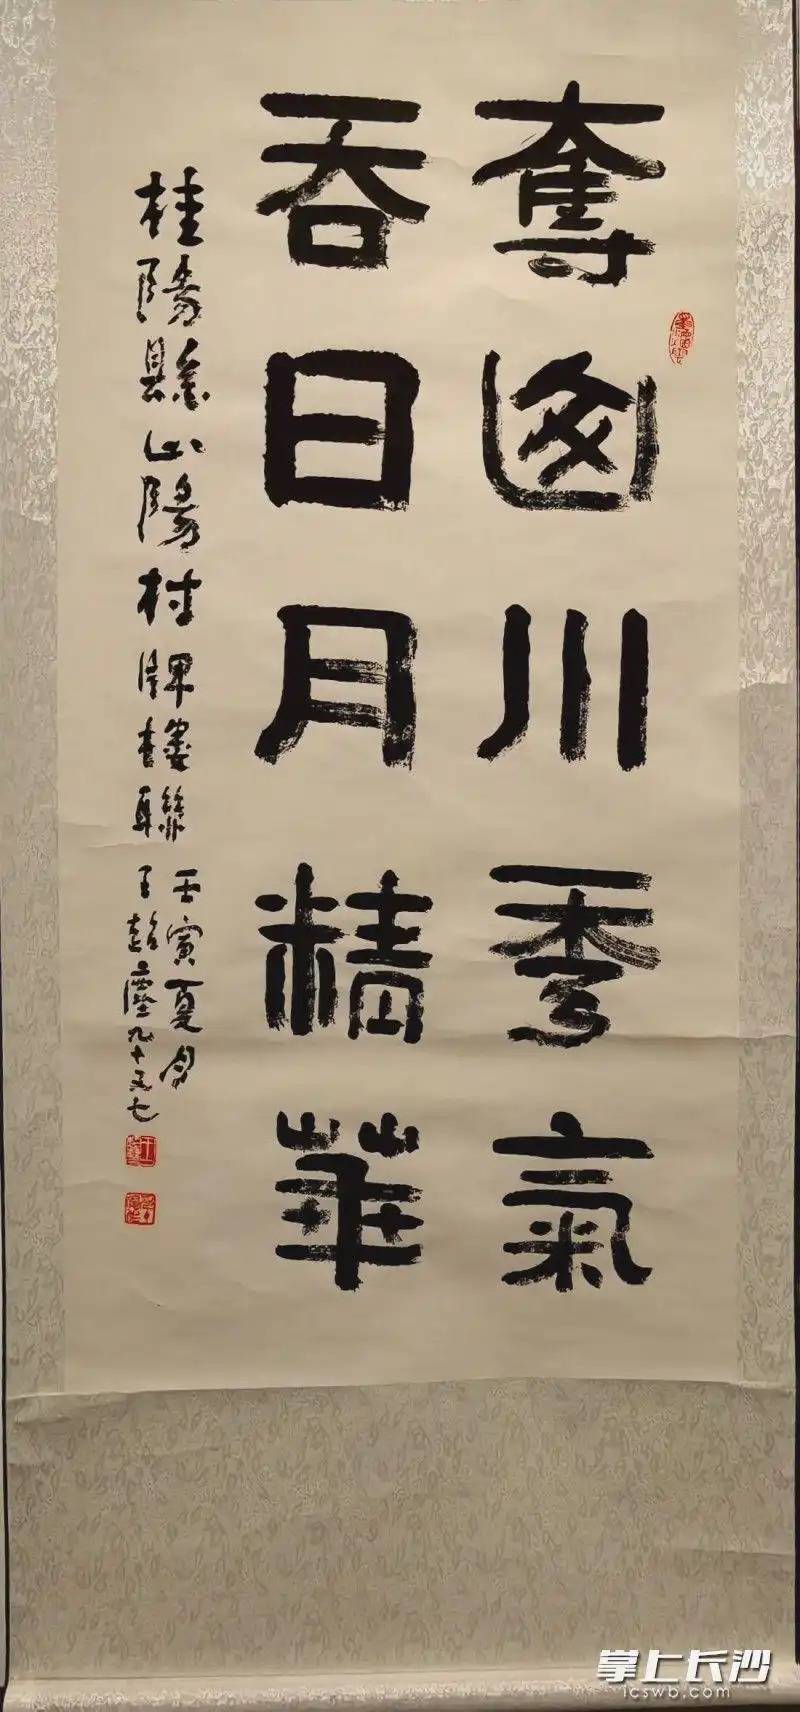 奪山川秀氣
吞日月精華
桂陽縣山陽村牌樓聯
壬寅夏月
王超塵九十又七
掌上长沙
icswb.com